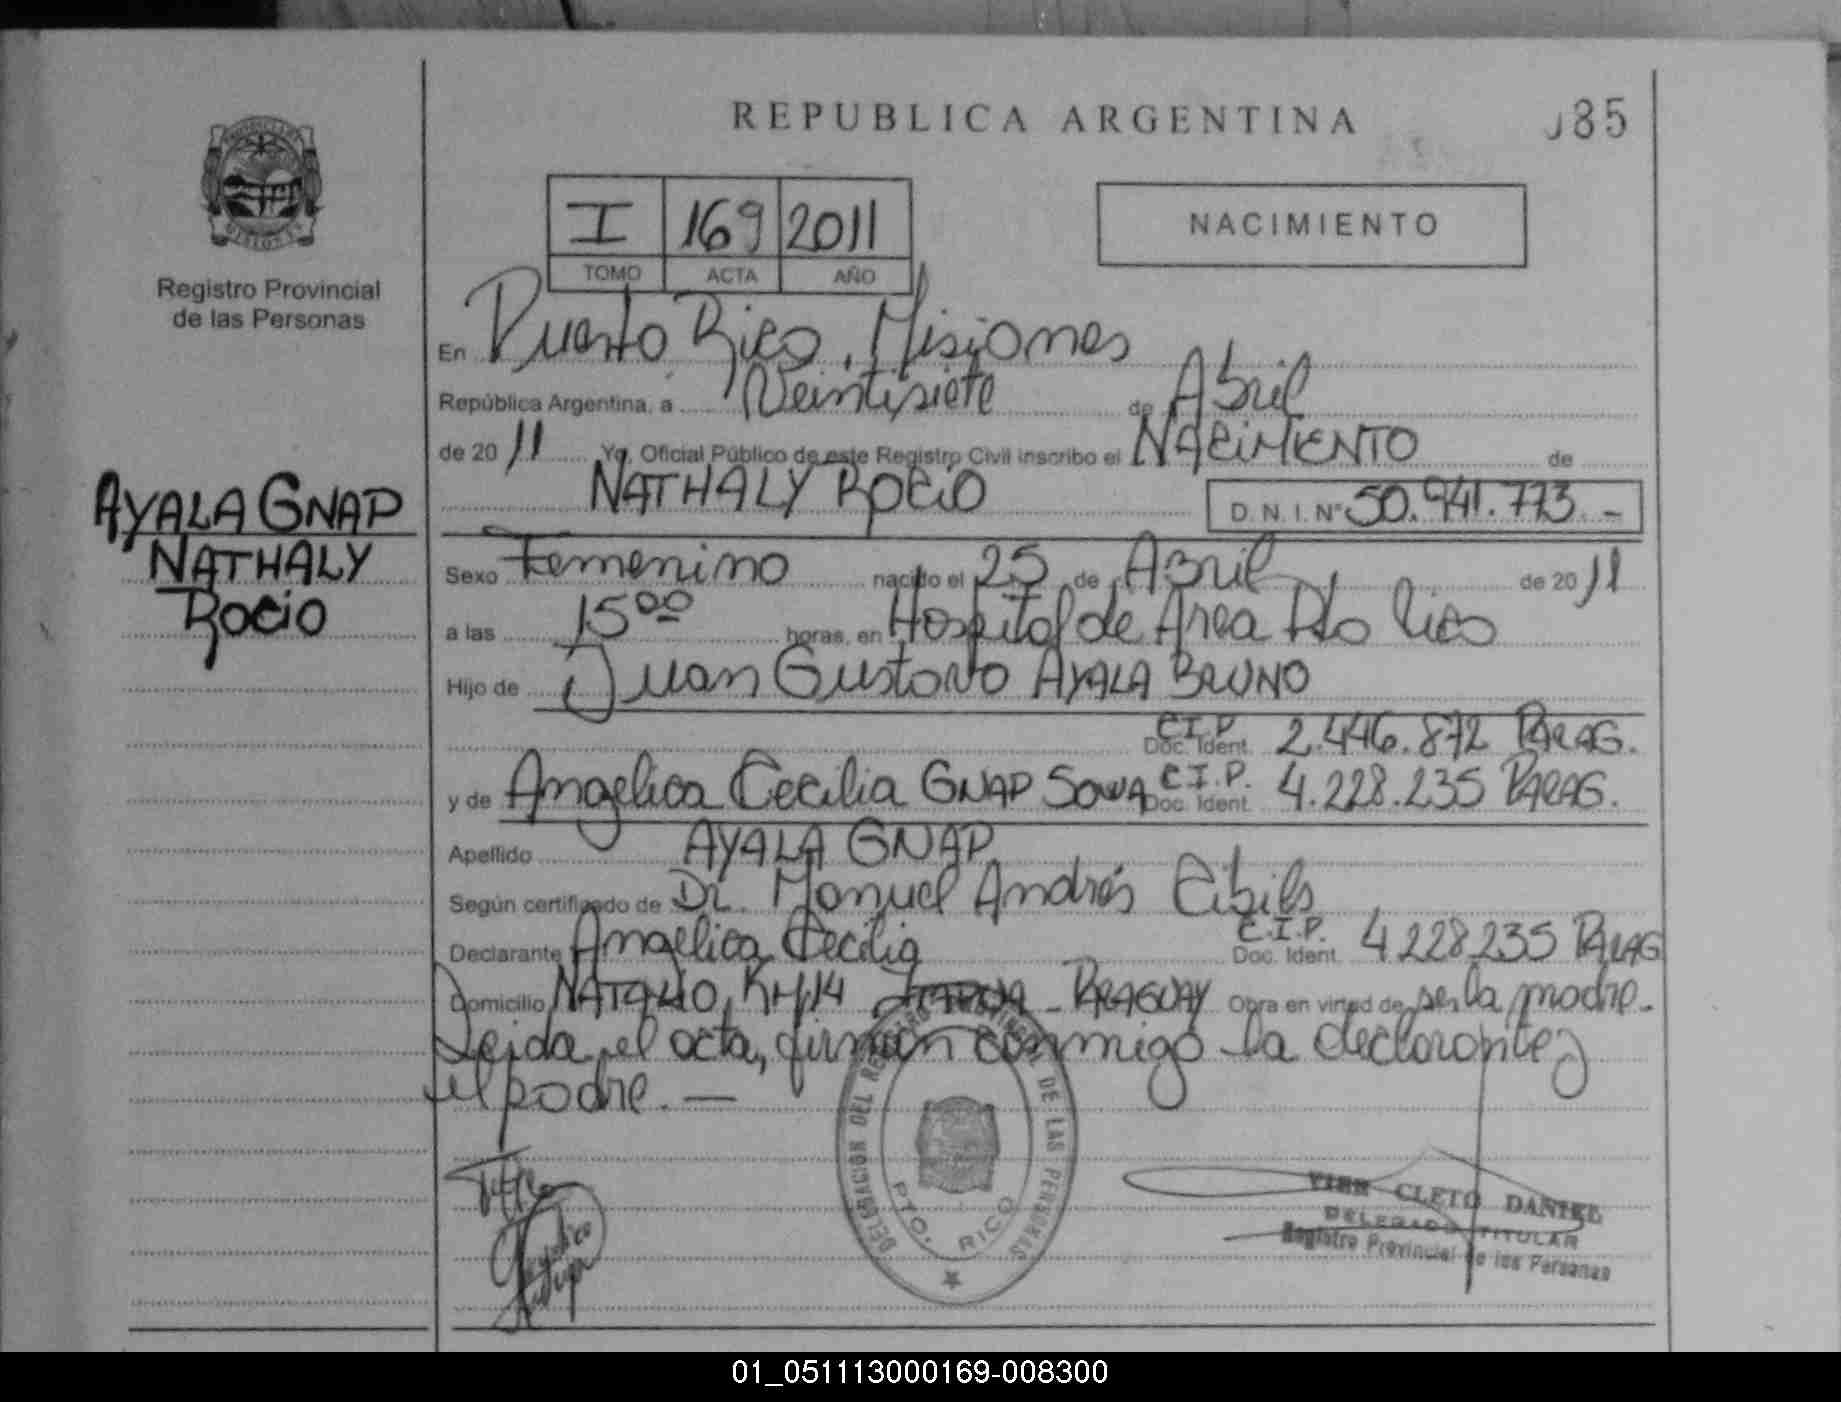 REPUBLICA ARGENTINA
085
I 169 2011
TOMO ACTA AÑO
NACIMIENTO
PROVINCIA
MISIONES
Registro Provincial
de las Personas
AYALA GNAP
NATHALY
Rocio
En Puerto Rico, Misiones
República Argentina, a Veintisiete de Abril
de 2011 Yo, Oficial Público de este Registro Civil inscribo el NACIMIENTO de
NATHALY Rocio D.N.I. Nº 50.941.773.-
Sexo Femenino nacido el 25 de Abril de 2011
a las 15⁰⁰ horas, en Hospital de Area Pto Rico
Hijo de Juan Gustavo AYALA BRUNO
C.I.P. Doc. Ident. 2.446.872 PARAG.
y de Angelica Cecilia GNAP SOWA C.I.P. Doc. Ident. 4.228.235 PARAG.
Apellido AYALA GNAP
Según certificado de Dr. Manuel Andrés Cibils
Declarante Angelica Cecilia C.I.P. Doc. Ident. 4228235 PARAG
Domicilio NATALIO, KM14 - PARAGUAY Obra en virtud de ser la madre.
Leida el acta, firman conmigo la declarante y
el padre. —
DELEGACION DEL REGISTRO PROVINCIAL DE LAS PERSONAS
PTO. RICO
CLETO DANIEL
DELEGADO TITULAR
Registro Provincial de las Personas
01_051113000169-008300